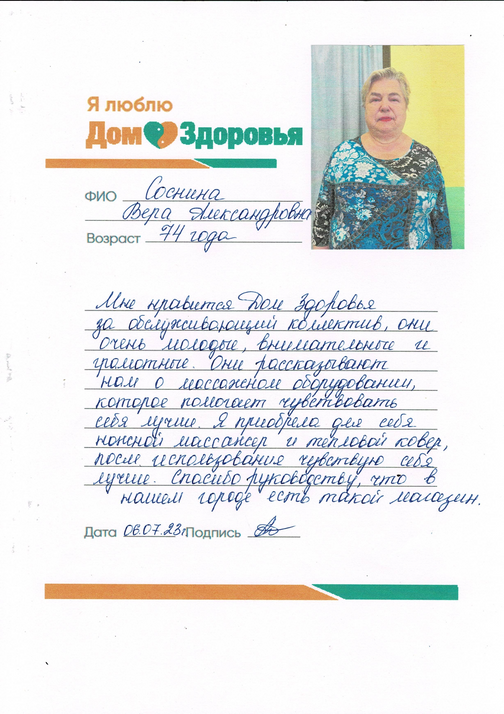 Я люблю
Дом Здоровья
ФИО Соснина
Вера Александровна
Возраст 74 года
Мне нравится Дом Здоровья
за обслуживающий коллектив, они
очень молодые, внимательные и
грамотные. Они рассказывают
нам о массажном оборудовании,
которое помогает чувствовать
себя лучше. Я приобрела для себя
ножной массансер и тепловой ковер,
после использования чувствую себя
лучше. Спасибо руководству, что в
нашем городе есть такой магазин.
Дата 06.07.23г Подпись